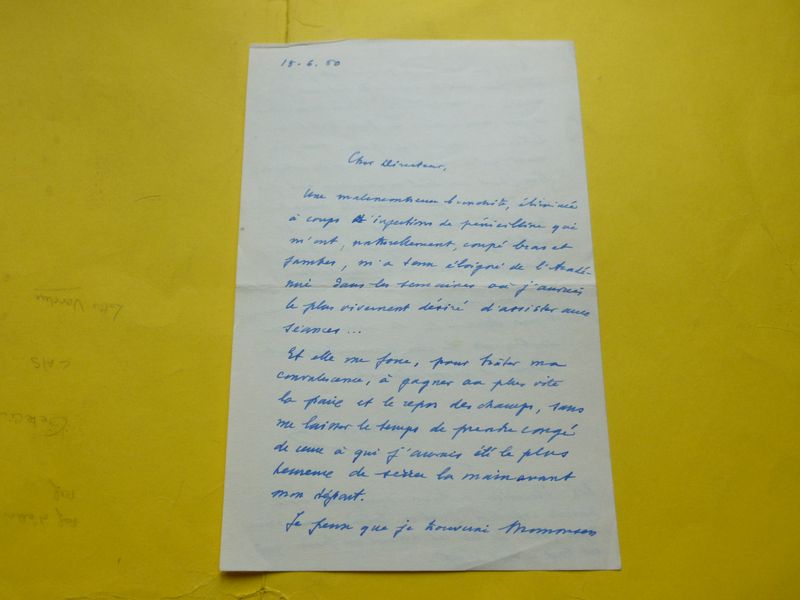 18-6.50
Cher Directeur,
Une malencontreuse bronchite, éliminée
à coups d'injections de pénicilline qui
m'ont, naturellement, coupé bras et
jambes, m'a tenu éloigné de l'Acadé-
mie dans les semaines où j'aurais
le plus vivement désiré d'assister aux
séances...
Et elle me force, pour hâter ma
convalescence, à gagner au plus vite
la paix et le repos des champs, sans
me laisser le temps de prendre congé
de ceux à qui j'aurais été le plus
heureux de serrer la main avant
mon départ.
Je pense que je trouverai